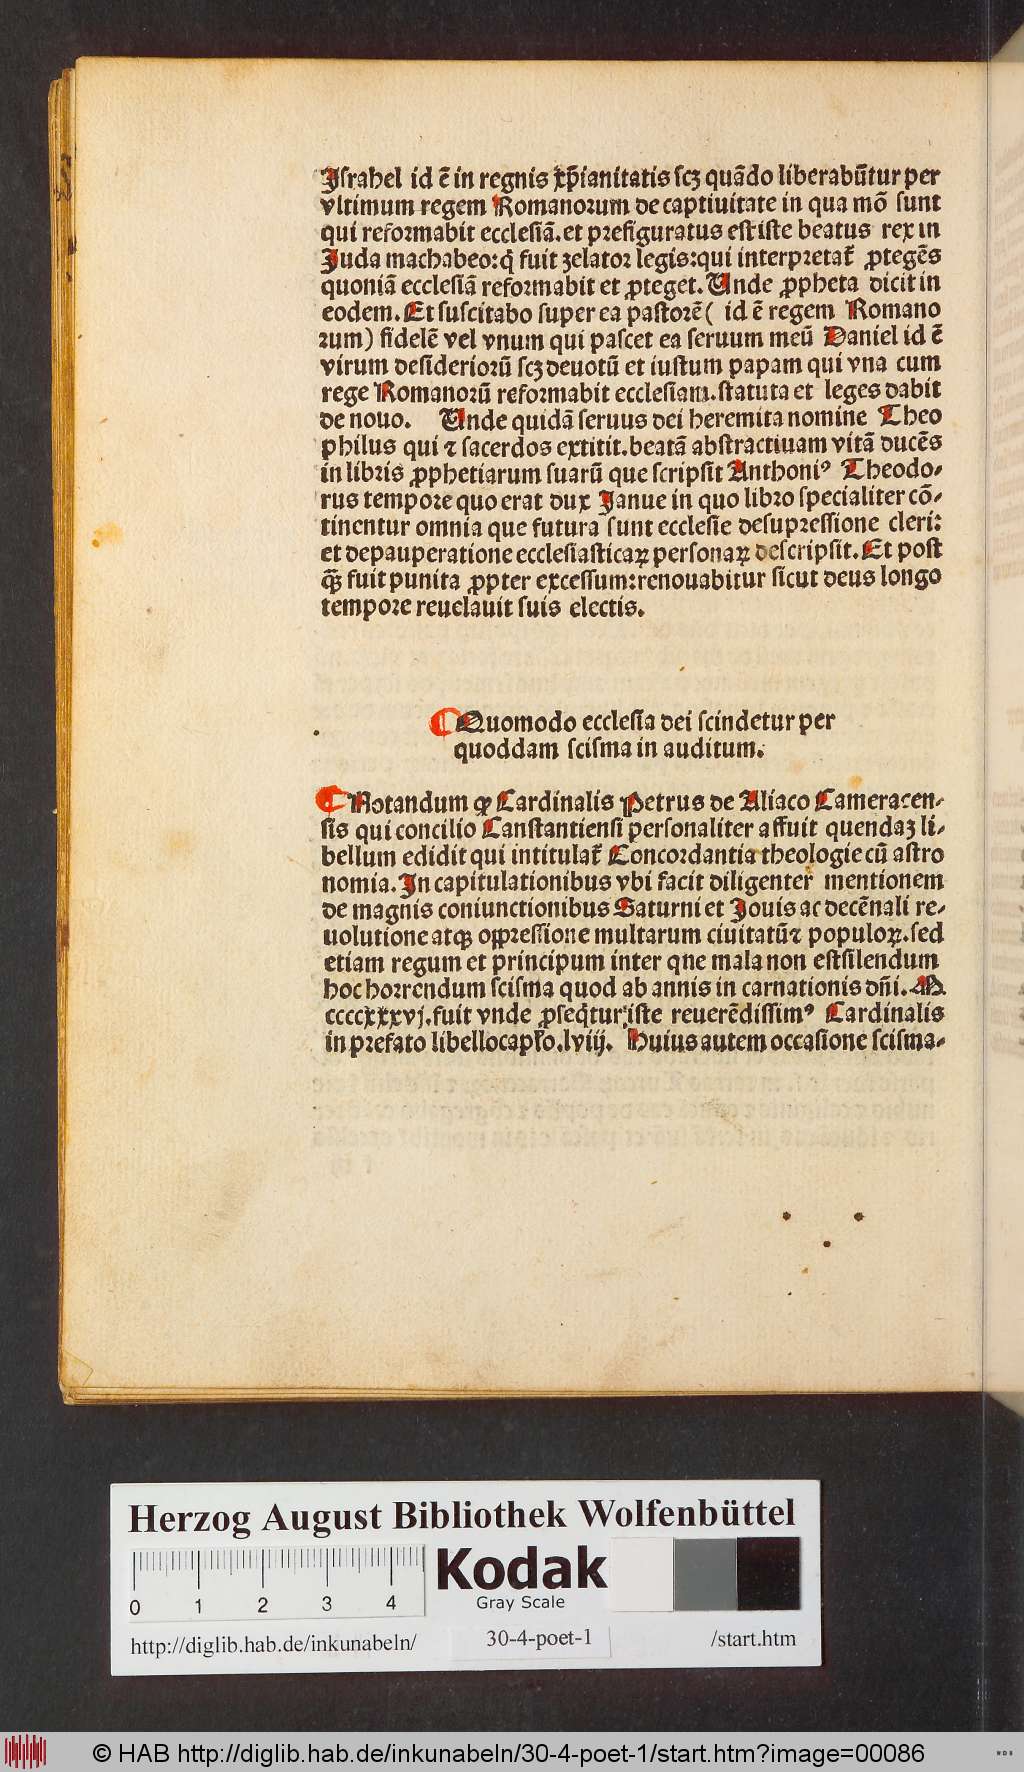 Jſrahel id ē in regnis xp̄ianitatis ſcꝫ quādo liberabūtur per
vltimum regem Romanoꝛum de captiuitate in qua mō ſunt
qui refoꝛmabit eccleſiā.et pꝛefiguratus eſt iſte beatus rex in
Juda machabeo:q̄ fuit zelatoꝛ legis:qui interpꝛetat᷑ ꝓtegēs
quoniā eccleſiā refoꝛmabit et ꝓteget.Unde ꝓpheta dicit in
eodem.Et ſuſcitabo ſuper ea paſtoꝛē( id ē regem Romano
ꝛum) fidelē vel vnum qui paſcet ea ſeruum meū Daniel id ē
virum deſiderioꝛū ſcꝫ deuotū et iuſtum papam qui vna cum
rege Romanoꝛū refoꝛmabit eccleſiam.ſtatuta et leges dabit
de nouo. Unde quidā ſeruus dei heremita nomine Theo
philus qui ⁊ ſacerdos extitit.beatā abſtractiuam vitā ducēs
in libris ꝓphetiarum ſuarū que ſcripſit Anthoniꝰ Theodo⸗
rus tempoꝛe quo erat dux Janue in quo libꝛo ſpecialiter cō⸗
tinentur omnia que futura ſunt eccleſie deſupꝛeſſione cleri:
et depauperatione eccleſiaſticaꝝ perſonaꝝ deſcripſit.Et poſt
ꝙ̄ fuit punita ꝓpter exceſſum:renouabitur ſicut deus longo
tempoꝛe reuelauit ſuis electis.
¶ Quomodo eccleſia dei ſcindetur per
quoddam ſciſma in auditum.
¶ Notandum ꝙ Cardinalis Petrus de Aliaco Cameracen⸗
ſis qui concilio Canſtantienſi perſonaliter affuit quendaꝫ li⸗
bellum edidit qui intitulat᷑ Concoꝛdantia theologie cū aſtro
nomia.In capitulationibus vbi facit diligenter mentionem
de magnis coniunctionibus Saturni et Jouis ac decēnali re⸗
uolutione atqꝫ oppꝛeſſione multarum ciuitatū⁊ populoꝝ.ſed
etiam regum et principum inter qne mala non eſtſilendum
hoc hoꝛrendum ſciſma quod ab annis in carnationis dn̄i.M
ccccxxxvj.fuit vnde ꝓſeq̄tur iſte reuerēdiſſimꝰ Cardinalis
in pꝛefato libellocapło.lviij. Huius autem occaſione ſciſma⸗
Herzog August Bibliothek Wolfenbüttel
Kodak
Gray Scale
0 1 2 3 4
http://diglib.hab.de/inkunabeln/ 30-4-poet-1 /start.htm
© HAB http://diglib.hab.de/inkunabeln/30-4-poet-1/start.htm?image=00086